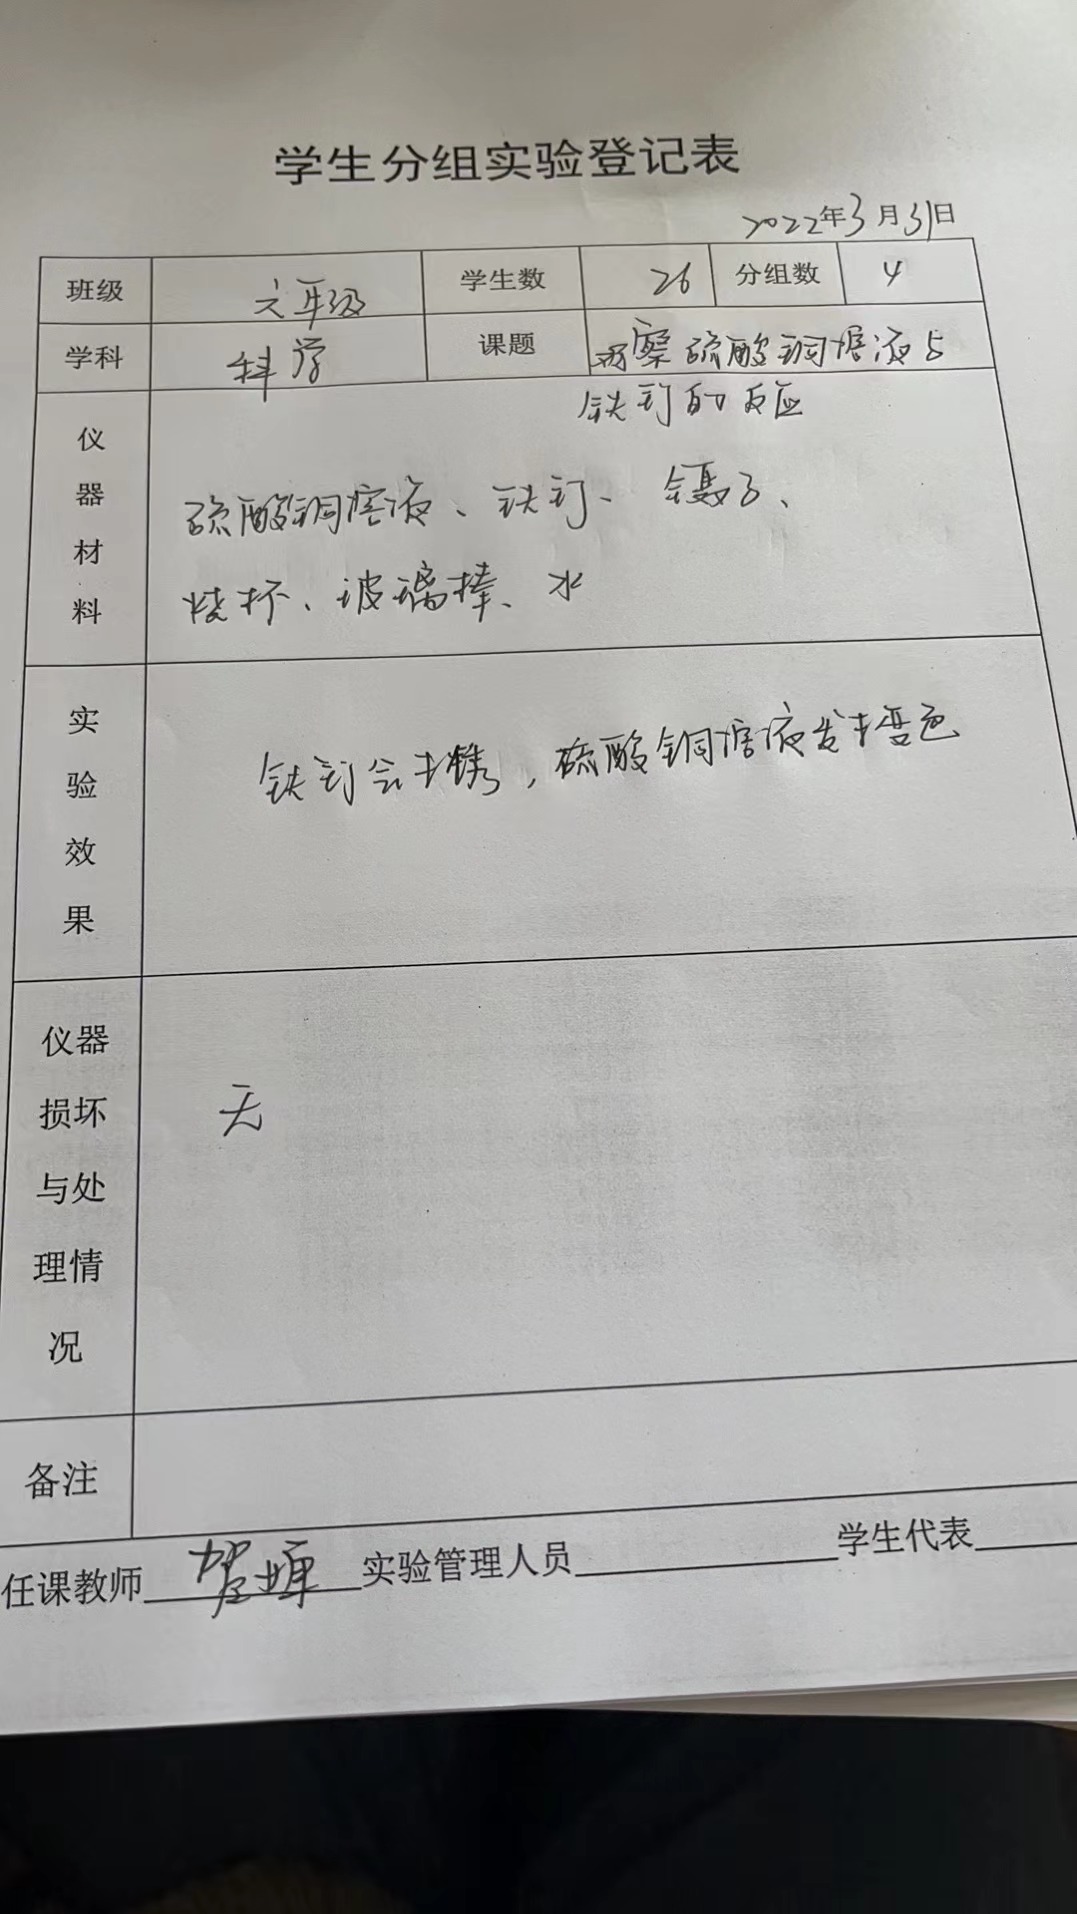 学生分组实验登记表
2022年3月31日
班级 六年级 学生数 26 分组数 4
学科 科学 课题 观察硫酸铜溶液与
铁钉的反应
仪器材料
硫酸铜溶液、铁钉、镊子、
烧杯、玻璃棒、水
实验效果
铁钉会生锈,硫酸铜溶液发生变色
仪器损坏与处理情况
无
备注
任课教师 实验管理人员 学生代表